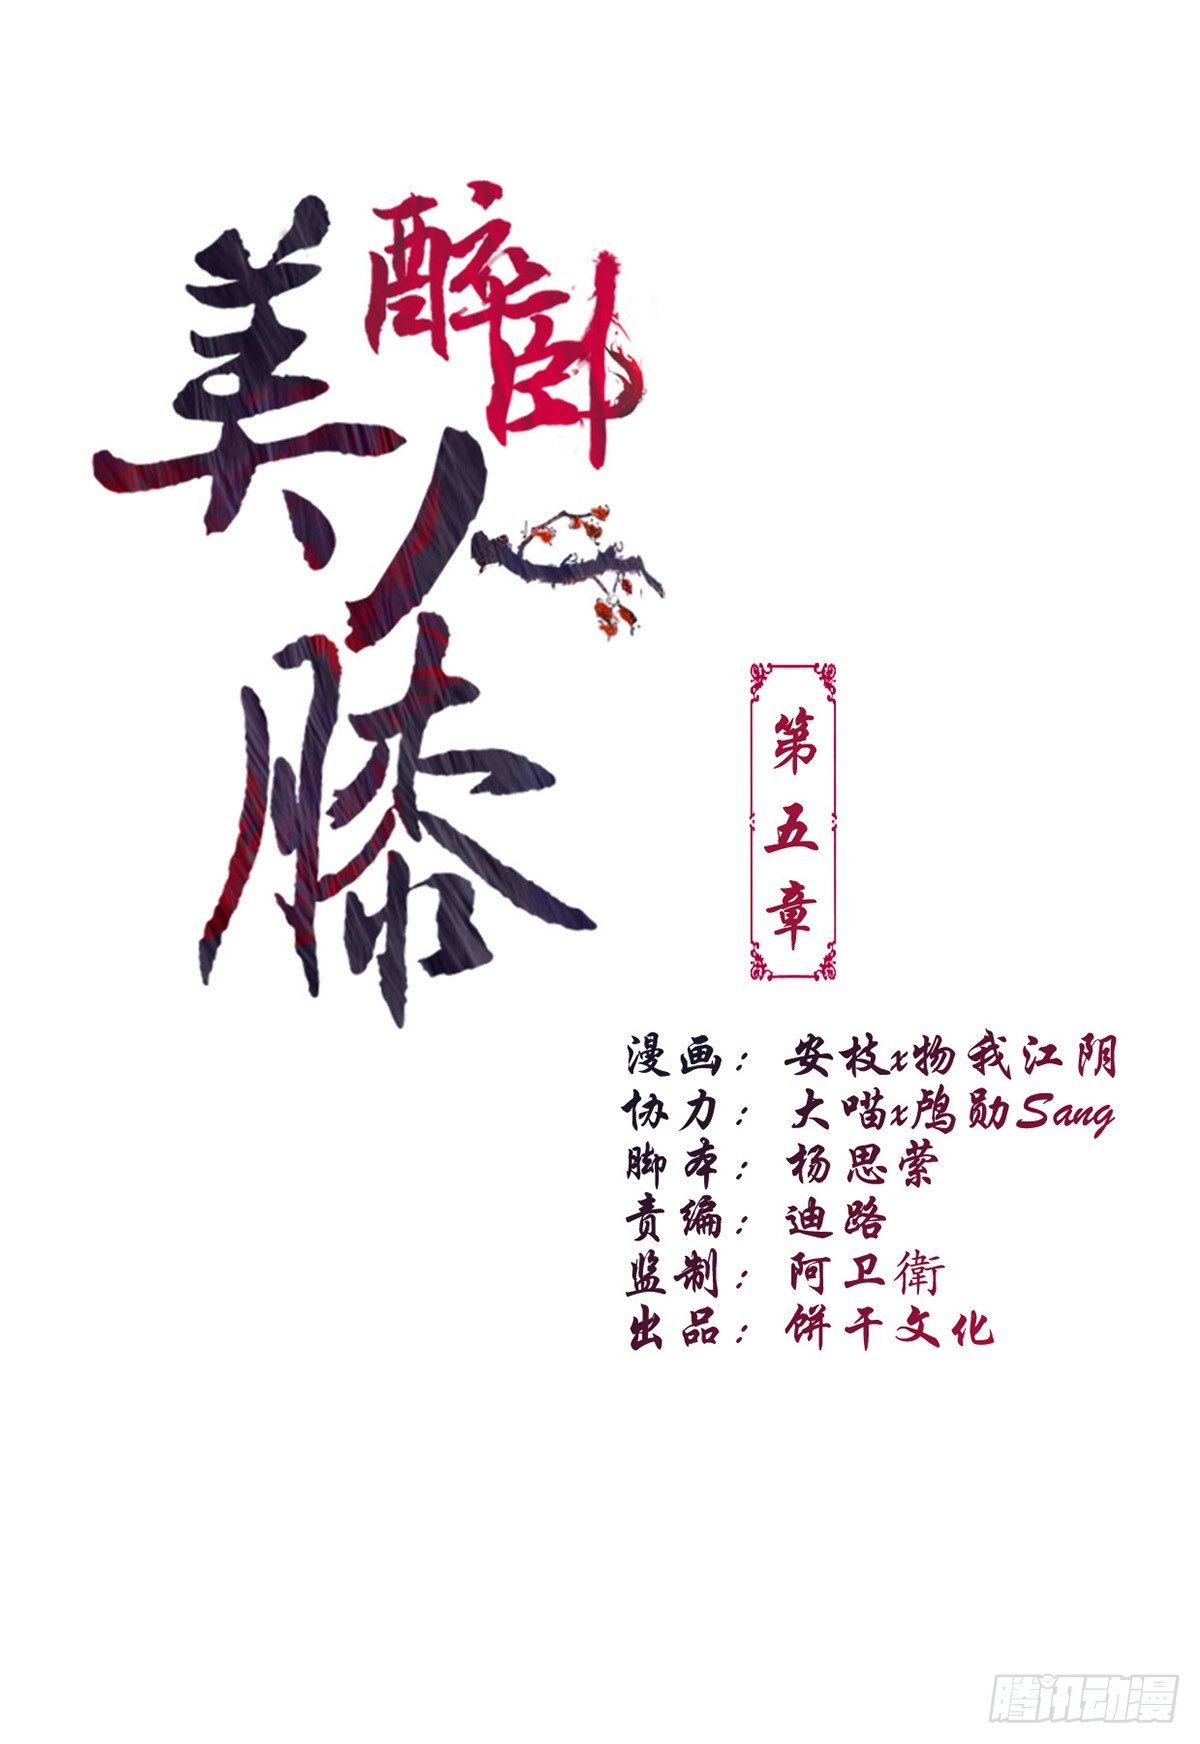 醉卧
美人膝
第五章
漫画：安枝x物我江阴
协力：大喵x鸬勋Sang
脚本：杨思萦
责编：迪路
监制：阿卫衛
出品：饼干文化
腾讯动漫